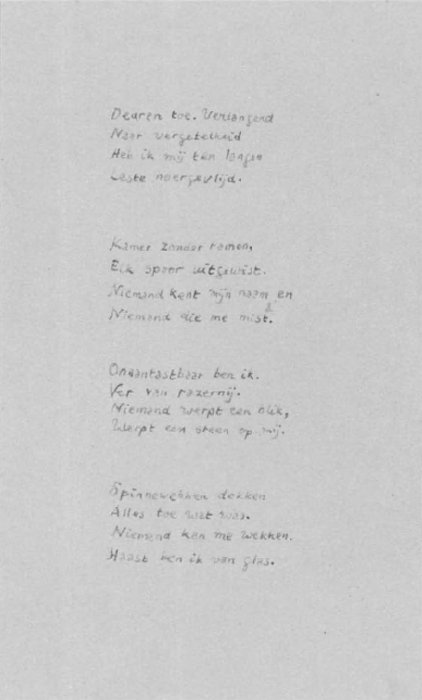 Deuren toe. Verlangend
Naar vergetelheid
Heb ik mij ten langen
Leste neergevlijd.
Kamer zonder ramen,
Elk spoor uitgewist.
Niemand kent mijn naam en
Niemand die me mist.
Onaantastbaar ben ik.
Ver van razernij.
Niemand werpt een blik,
Werpt een steen op mij.
Spinnewebben dekken
Alles toe wat was.
Niemand kan me wekken.
Haast ben ik van glas.